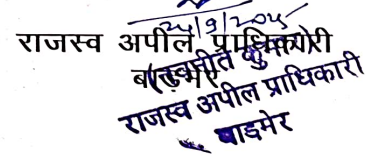 24/9/2025
राजस्व अपील प्राधिकारी
बाड़मेर
राजस्व अपील प्राधिकारी
बाडमेर